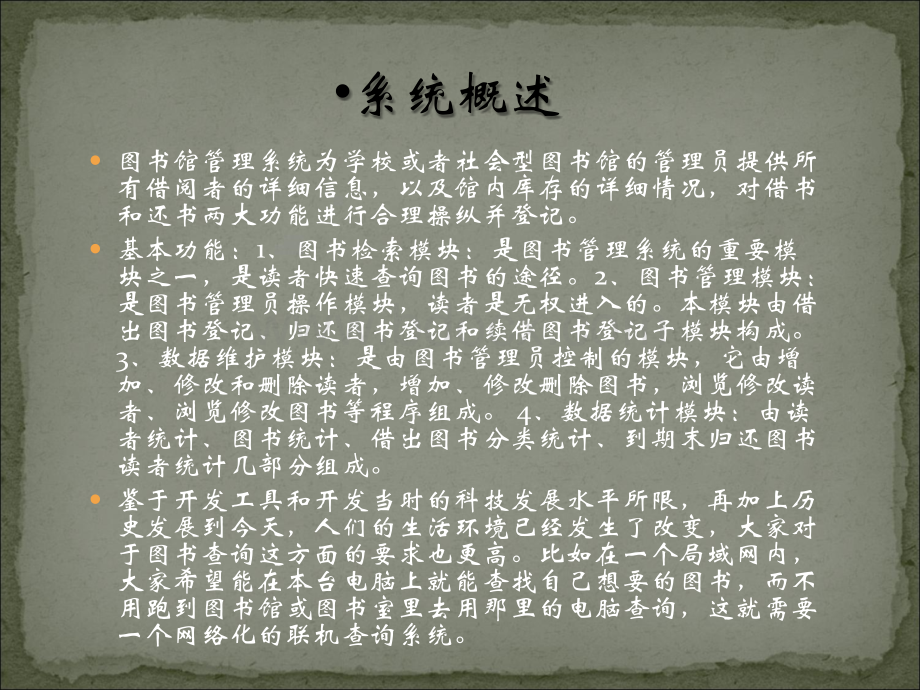 •系统概述
• 图书馆管理系统为学校或者社会型图书馆的管理员提供所
有借阅者的详细信息，以及馆内库存的详细情况，对借书
和还书两大功能进行合理操纵并登记。
• 基本功能：1、图书检索模块：是图书管理系统的重要模
块之一，是读者快速查询图书的途径。2、图书管理模块：
是图书管理员操作模块，读者是无权进入的。本模块由借
出图书登记、归还图书登记和续借图书登记子模块构成。
3、数据维护模块：是由图书管理员控制的模块，它由增
加、修改和删除读者，增加、修改删除图书，浏览修改读
者、浏览修改图书等程序组成。4、数据统计模块：由读
者统计、图书统计、借出图书分类统计、到期末归还图书
读者统计几部分组成。
• 鉴于开发工具和开发当时的科技发展水平所限，再加上历
史发展到今天，人们的生活环境已经发生了改变，大家对
于图书查询这方面的要求也更高。比如在一个局域网内，
大家希望能在本台电脑上就能查找自己想要的图书，而不
用跑到图书馆或图书室里去用那里的电脑查询，这就需要
一个网络化的联机查询系统。